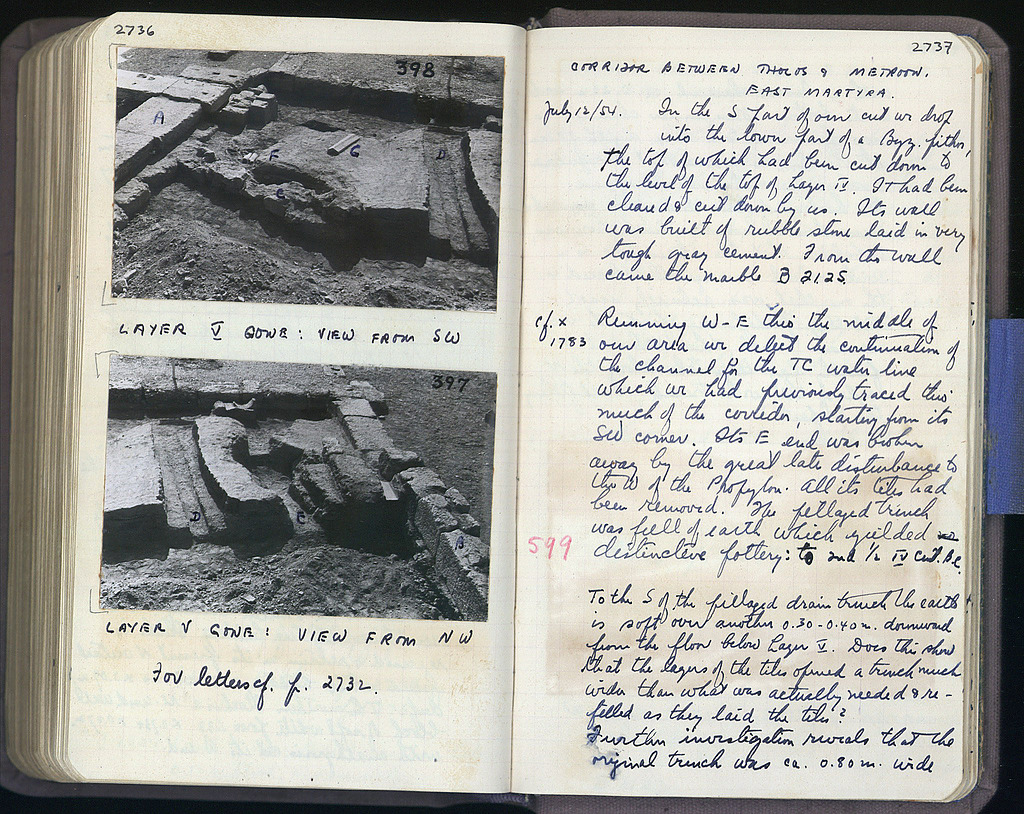 2736
398
A
F
G
D
C
LAYER V GONE: VIEW FROM SW
397
D
E
B
LAYER V GONE: VIEW FROM NW
For letters cf. p. 2732.
2737
CORRIDOR BETWEEN THOLOS & METROON.
EAST MARTYRA.
July 12/54. In the S part of our cut we drop
into the lower part of a Byz. pithos,
the top of which had been cut down to
the level of the top of Layer IV. It had been
cleared & cut down by us. Its wall
was built of rubble stone laid in very
tough gray cement. From the wall
came the marble B 2125.
cf. x
1783
Running W-E thro the middle of
our area we detect the continuation of
the channel for the TC water line
which we had previously traced thro
much of the corridor, starting from its
SW corner. Its E end was broken
away by the great late disturbance to
the W of the Propylon. All its tiles had
been removed. The pillaged trench
was full of earth which yielded
599
distinctive pottery: to 2nd 1/2 IV cent. B.C.
To the S of the pillaged drain trench the earth
is soft over another 0.30-0.40 m. downward
from the floor below Layer V. Does this show
that the layers of the tiles opened a trench much
wider than what was actually needed & re-
filled as they laid the tiles?
Further investigation reveals that the
original trench was ca. 0.80 m. wide